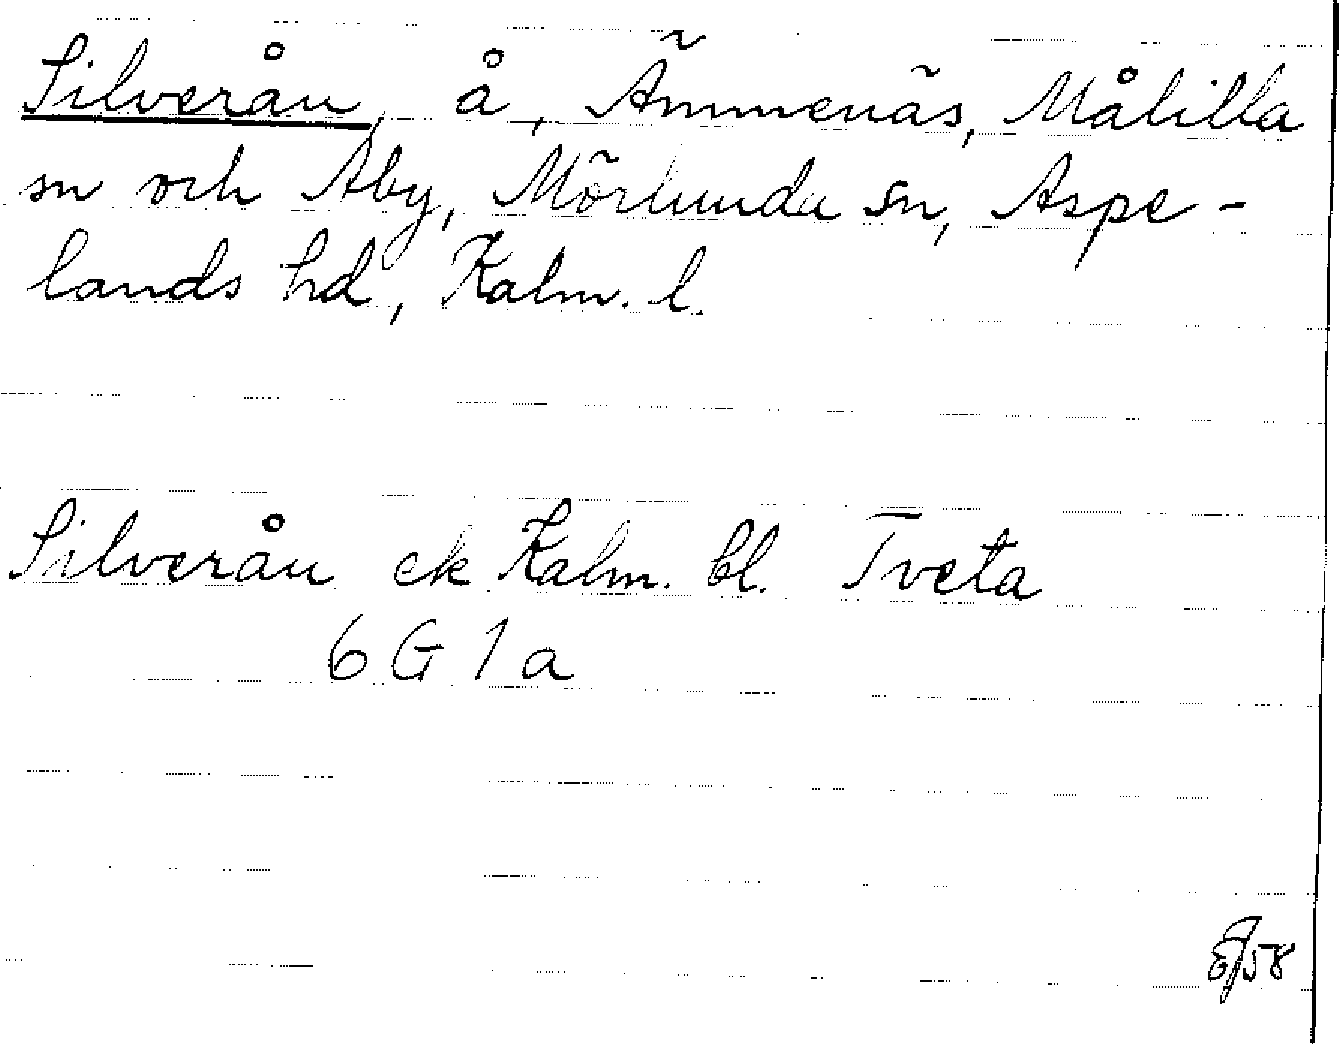 Silverån, å, Ämmenäs, Målilla
sn och Aby, Mörlunda sn, Aspe-
lands hd, Kalm. l.
Silverån ek Kalm. bl. Tveta
6 G 1 a
58